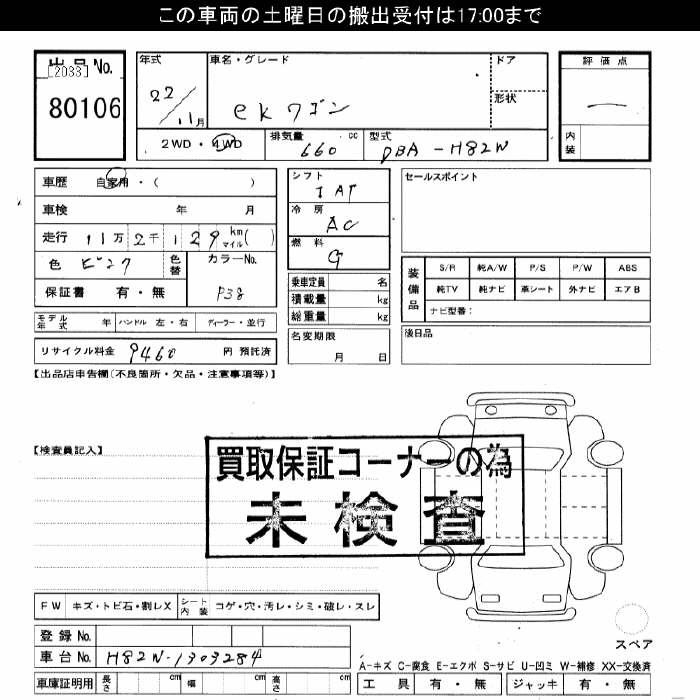 この車両の土曜日の搬出受付は17:00まで
出品No.
[2033]
80106
年式 22/11月
車名・グレード ekワゴン
ドア
形状
評価点 ー
内装
2WD・4WD
排気量 660 cc
型式 DBA-H82W
車歴 自家用・( )
車検 年 月
走行 11万2千129 km マイル( )
色 ピンク
色替
カラーNo. P38
保証書 有・無
シフト IAT
冷房 AC
燃料 G
乗車定員 名
積載量 kg
総重量 kg
セールスポイント
装備品
S/R 純A/W P/S P/W ABS
純TV 純ナビ 革シート 外ナビ エアB
ナビ型番:
モデル年式 年 ハンドル 左・右 ディーラー・並行
名変期限 月 日
後日品
リサイクル料金 9460 円 預託済
【出品店申告欄(不良箇所・欠品・注意事項等)】
【検査員記入】
買取保証コーナーの為
未検査
FW キズ・トビ石・割レX
シート内装 コゲ・穴・汚レ・シミ・破レ・スレ
スペア
登録No.
車台No. H82W-1303284
A-キズ C-腐食 E-エクボ S-サビ U-凹ミ W-補修 XX-交換済
車庫証明用 長さ cm 幅 cm 高さ cm
工具 有・無 ジャッキ 有・無